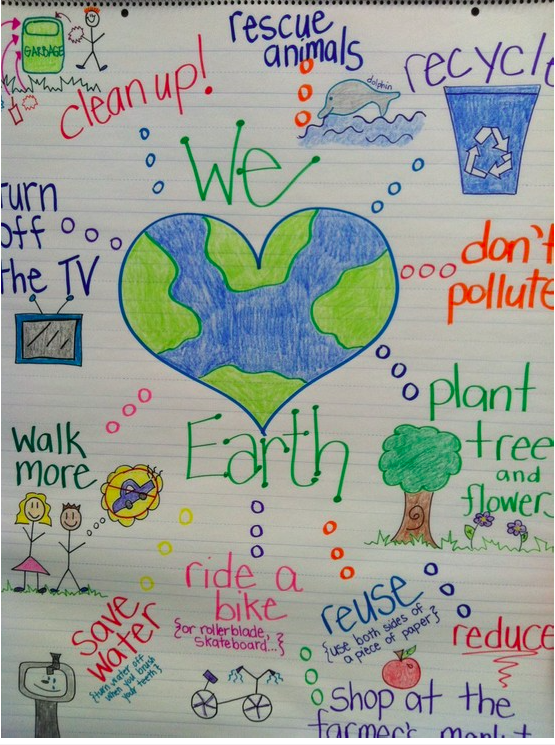 GARBAGE
clean up!
rescue
animals
dolphin
recycle
We
turn
off
the TV
don't
pollute
Earth
plant
tree
and
flowers
walk
more
ride a
bike
{or rollerblade,
skateboard...}
reuse
{use both sides of
a piece of paper}
reduce
save
water
{turn water off
when you brush
your teeth}
shop at the
farmer's market